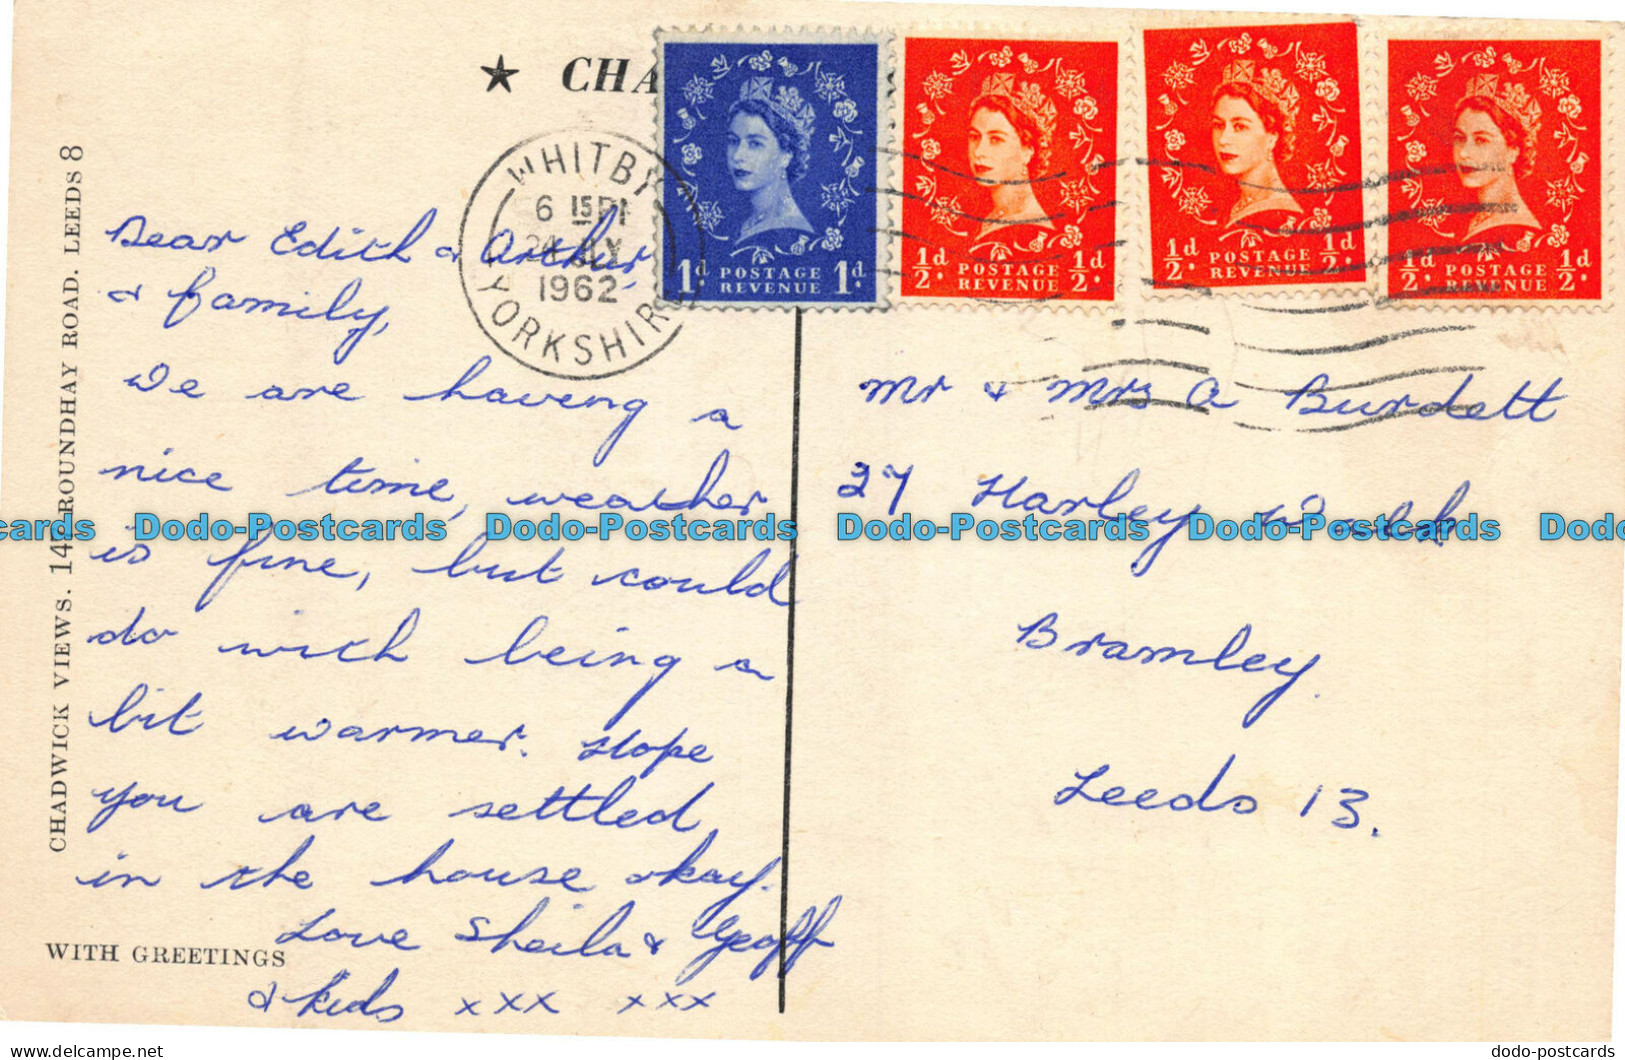 ★ CHA
WHITBY
6 15 PM
24 JLY
1962
YORKSHIRE
1d. POSTAGE REVENUE 1d.
½d. POSTAGE REVENUE ½d.
½d. POSTAGE REVENUE ½d.
½d. POSTAGE REVENUE ½d.
CHADWICK VIEWS. 142 ROUNDHAY ROAD. LEEDS 8
Dear Edith & Arthur,
& family,
We are having a
nice time, weather
is fine, but could
do with being a
bit warmer. Hope
you are settled
in the house okay.
Love Sheila & Geoff
& kids xxx xxx
WITH GREETINGS
Mr & Mrs A Burdett
27 Harley Walk
Bramley.
Leeds 13.
Dodo-Postcards Dodo-Postcards Dodo-Postcards Dodo-Postcards
Dodo-postcards.delcampe.net
dodo-postcards